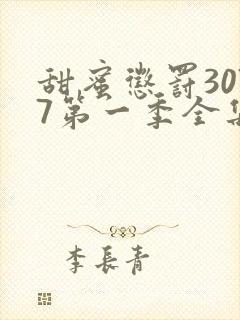 甜蜜惩罚30
7第一季全集
李长青